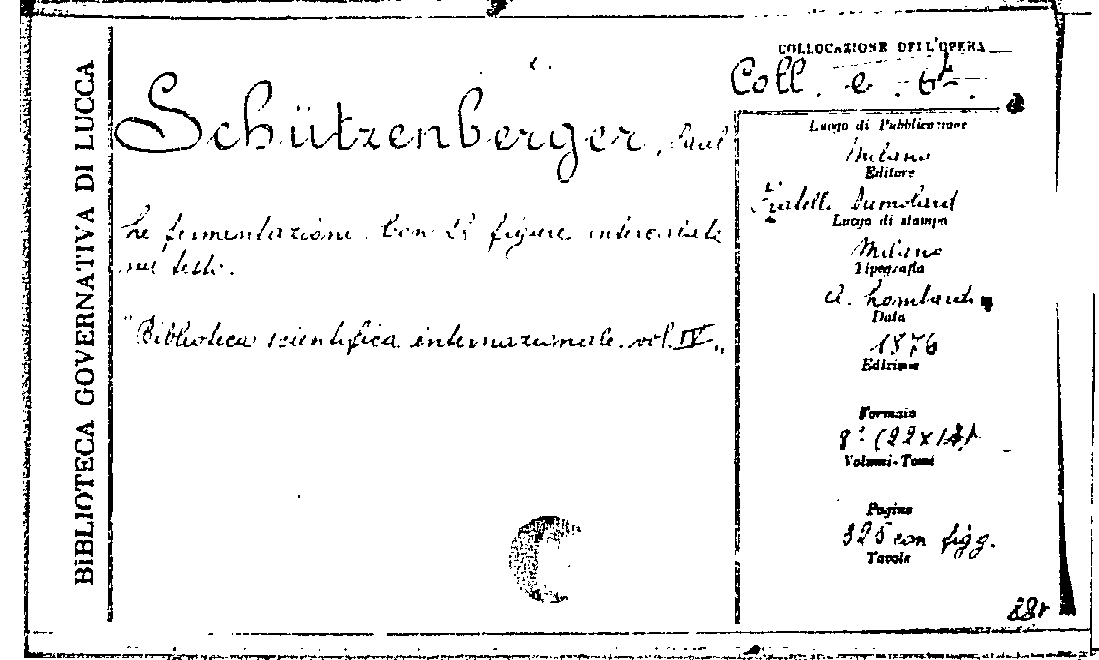 BIBLIOTECA GOVERNATIVA DI LUCCA
COLLOCAZIONE DELL'OPERA
Coll. e.
Schützenberger, Paul
Le fermentazioni. Con figure intercalate
nel testo.
"Biblioteca scientifica internazionale. vol. IV"
Luogo di Pubblicazione
Milano
Editore
Fratelli Dumolard
Luogo di stampa
Milano
Tipografia
A. Lombardi
Data
1876
Edizione
Formato
8° (22x
Volumi-Tomi
Pagine
325 con figg.
Tavole